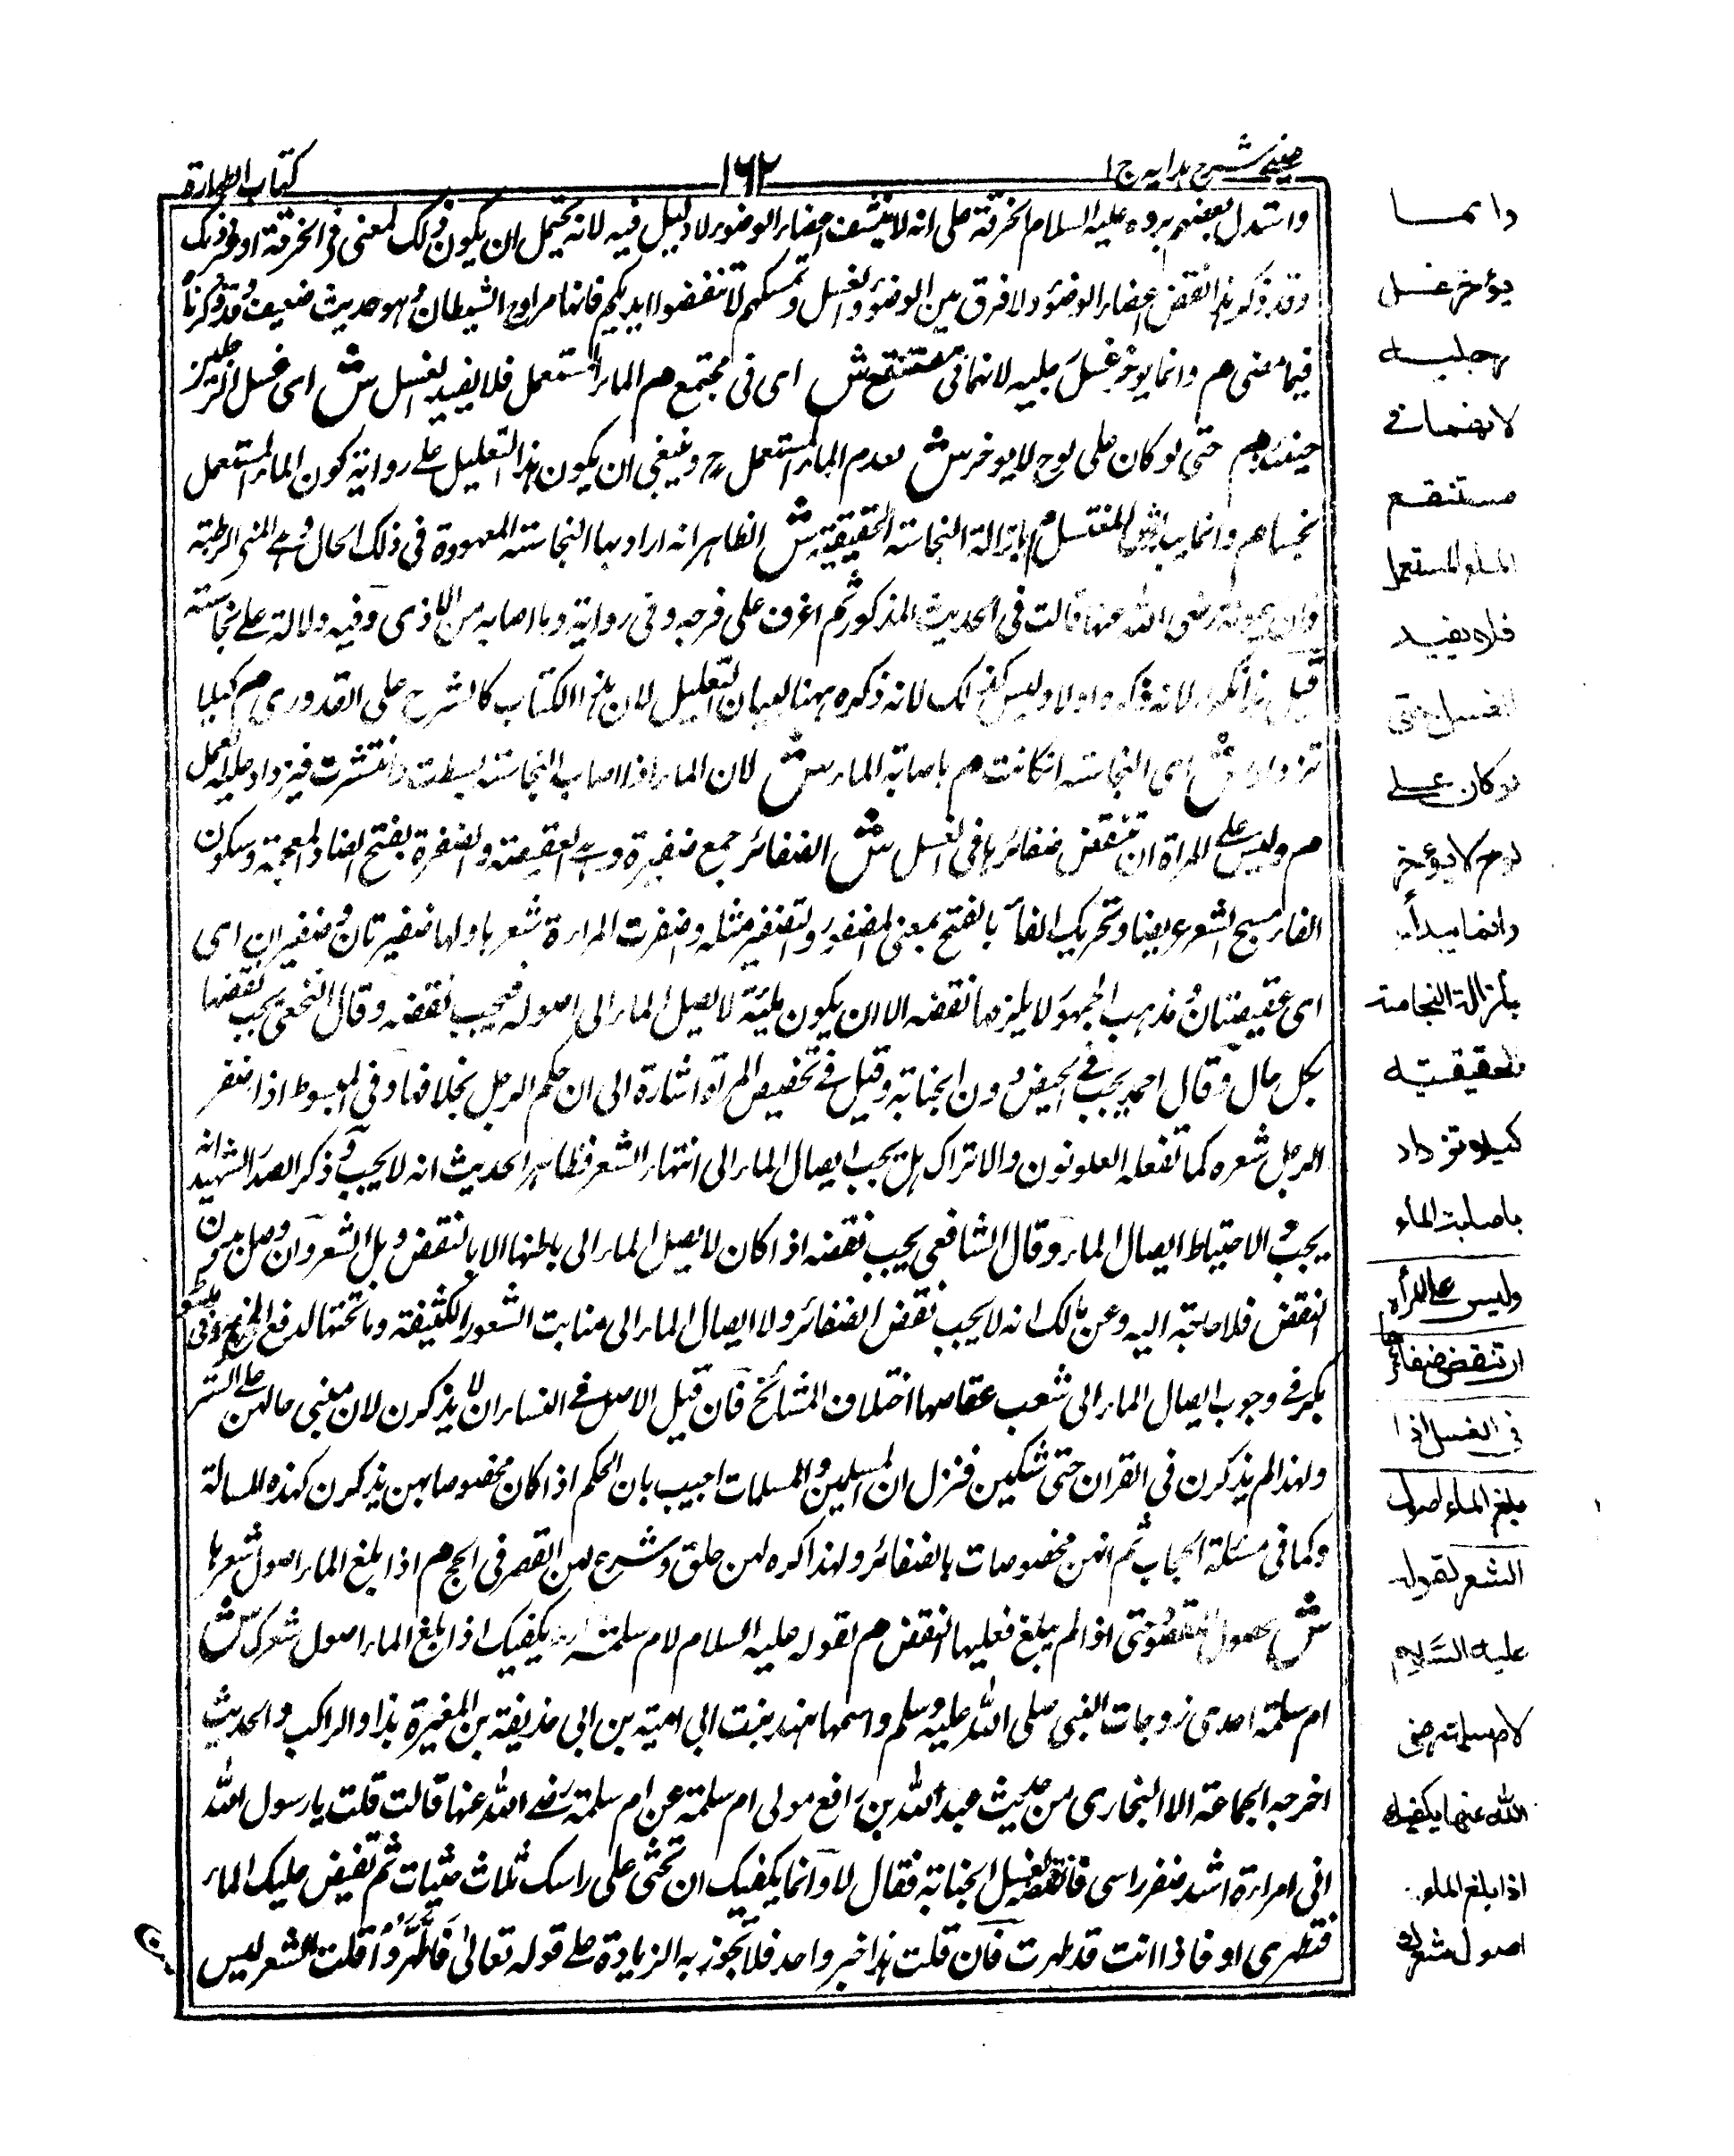 عینی شرح ہدایہ ج ۱
۱۶۲
کتاب الطہارة
واستدل بعضہم بردہ علیہ السلام الخرقة على انہ لا ینشف اعضاء الوضوء ولا دلیل فیہ لانہ یحتمل ان یکون ذلک لمعنى فی الخرقة او غیر ذلک
وقد ذکر ہذا نفض اعضاء الوضوء ولا فرق بین الوضوء والغسل وتمسکہم لا تنفضوا ایدیکم فانہا مراوح الشیطان وہو حدیث ضعیف وقد ذکرناہ
فیما مضى م وانما یوخر غسل رجلیہ لانہما فی مستنقع ش اى فی مجتمع م الماء المستعمل فلا یفید الغسل ش اى غسل الرجلین
حینئذ م حتى لو کان على لوح لا یوخر ش لعدم الماء المستعمل ح وینبغی ان یکون ہذا التعلیل على روایة کون الماء المستعمل
نجسا م وانما یبدأ ش المغتسل م بازالة النجاسة الحقیقیة ش الظاہر انہ اراد بہا النجاسة المعہودة فی ذلک الحال وہی المنی الرطبة
وان میمونة رضى اللہ عنہا قالت فی الحدیث المذکور ثم افرغ على فرجہ وفی روایة وما اصابہ من الاذى وفیہ دلالة على نجاستہ
قیل ہذا تکرار لانہ ذکرہ اولا ولیس کذلک لانہ ذکرہ ہہنا لبیان التعلیل لان ہذا الکتاب کالشرح على القدورى م کیلا
تزداد ش اى النجاسة ان کانت م باصابة الماء ش لان الماء اذا اصاب النجاسة بسطت وانتشرت فیزداد علیہ العمل
م ولیس على المراة ان تنقض ضفائرہا فی الغسل ش الضفائر جمع ضفیرة وہی العقیصة والضفرة بفتح الضاد المعجمة وسکون
الفاء نسج الشعر عریضا وتحریک الفاء بالفتح بمعنى المضفور والتضفیر مثلہ وضفرت المراة شعرہا ولہا ضفیرتان وضفیران اى
اى عقیصتان ومذہب الجمہور لا یلزمہا نقضہ الا ان یکون ملبدة لا یصل الماء الى اصولہ فیجب نقضہ وقال النخعی یجب نقضہا
بکل حال وقال احمد یجب فی الحیض دون الجنابة وقیل فی تخصیص المرأة اشارة الى ان حکم الرجل بخلافہا وفی المبسوط اذا ضفر
الرجل شعرہ کما تفعلہ العلویون والاتراک ہل یجب ایصال الماء الى اثناء الشعر فظاہر الحدیث انہ لا یجب وذکر الصدر الشہید انہ
یجب والاحتیاط ایصال الماء وقال الشافعی یجب نقضہ اذا کان لا یصل الماء الى باطنہا الا بالنقض وبل الشعر وان وصل بدون
النقض فلا حاجة الیہ وعن مالک انہ لا یجب نقض الضفائر ولا ایصال الماء الى منابت الشعور الکثیفة وما تحتہا لدفع الحرج وفی مبسوط
بکر فی وجوب ایصال الماء الى شعب عقاصہا اختلاف المشائخ فان قیل الاصل فی النساء ان لا یذکرن لان مبنى حالہن على الستر
ولہذا لم یذکرن فی القران حتى شکین فنزل ان المسلمین والمسلمات اجیب بان الحکم اذا کان مخصوصا بہن یذکرن کہذہ المسالة
وکما فی مسئلة الحجاب ثم انہن مخصوصات بالضفائر ولہذا کرہ لہن حلق وشرع لہن القصر فی الحج م اذا بلغ الماء اصول شعرہا
ش لحصول المقصود حتى اذا لم یبلغ فعلیہا النقض م لقولہ علیہ السلام لام سلمة یکفیک اذا بلغ الماء اصول شعرک ش
ام سلمة احدى زوجات النبی صلى اللہ علیہ وسلم واسمہا ہند بنت ابی امیة بن ابی حذیفة بن المغیرة ہذا والراکب والحدیث
اخرجہ الجماعة الا البخارى من حدیث عبد اللہ بن رافع مولى ام سلمة عن ام سلمة رضى اللہ عنہا قالت قلت یا رسول اللہ
انی امراة اشد ضفر راسی فانقضہ لغسل الجنابة فقال لا وانما یکفیک ان تحثى على راسک ثلاث حثیات ثم تفیض علیک الماء
فتطہرى او فاذا انت قد طہرت فان قلت ہذا خبر واحد فلا تجوز بہ الزیادة على قولہ تعالىٰ فَاطَّهَّرُوا قلت الشعر لیس
وانما
یؤخر غسل
رجلیہ
لانہما فی
مستنقع
الماء المستعمل
فلا یفید
الغسل حتى
لو کان على
لوح لا یؤخر
وانما یبدأ
بازالة النجاسة
الحقیقیة
کیلا تزداد
باصابة الماء
ولیس على المرأة
ان تنقض ضفائرہا
فی الغسل اذا
بلغ الماء اصول
الشعر لقولہ
علیہ السَّلام
لام سلمة رضی
اللہ عنہا یکفیک
اذا بلغ الماء
اصول شعرک